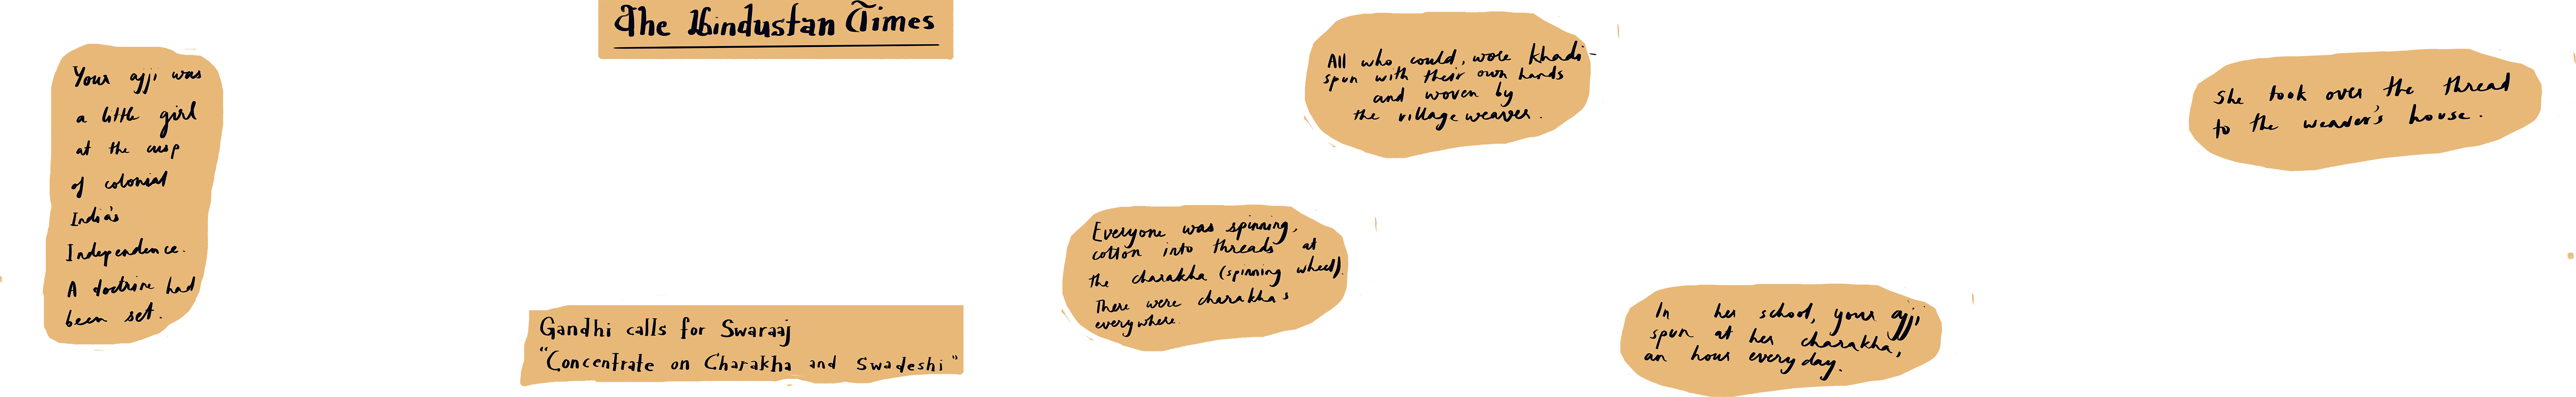 Your ajji was
a little girl
at the cusp
of colonial
India's
Independence.
A doctrine had
been set.
The Hindustan Times
Gandhi calls for Swaraaj
"Concentrate on Charakha and Swadeshi"
Everyone was spinning,
cotton into threads at
the charakha (spinning wheel).
There were charakhas
everywhere.
All who could, wore khadi-
spun with their own hands
and woven by
the village weaver.
In her school, your ajji
spun at her charakha,
an hour every day.
She took over the thread
to the weaver's house.